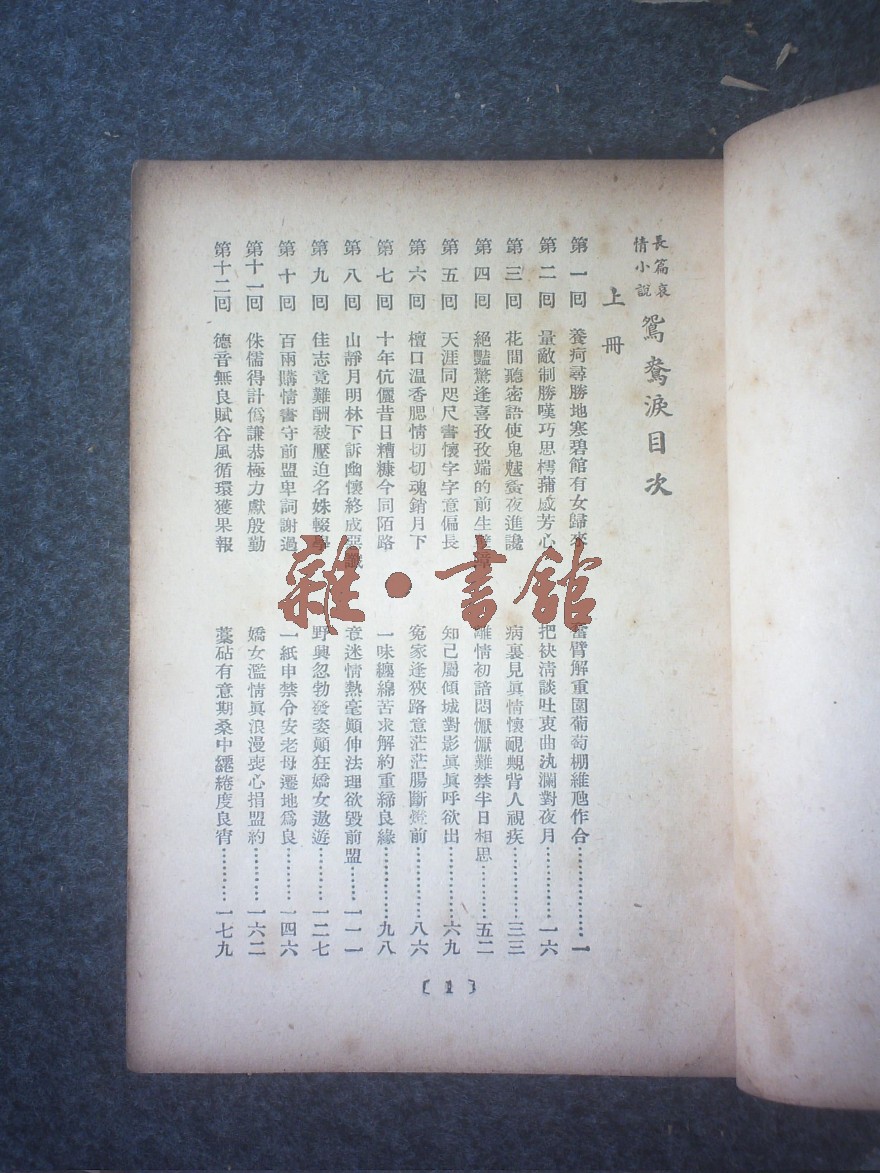 長篇哀
情小說
鴛鴦淚目次
上冊
第一回 養疴尋勝地寒碧館有女歸來 奮臂解重圍葡萄棚維虺作合………………一
第二回 量敵制勝嘆巧思樗蒲感芳心 把袂淸談吐衷曲汍瀾對夜月…………一六
第三回 花間聽密語使鬼蜮夤夜進讒 病裏見眞情懷覬覦背人視疾…………三三
第四回 絕豔驚逢喜孜孜端的前生 離情初諳悶懨懨難禁半日相思………五二
第五回 天涯同咫尺書懷字字意偏長 知己屬傾城對影眞眞呼欲出…………六九
第六回 檀口温香腮情切切魂銷月下 寃家逢狹路意茫茫腸斷燈前…………八六
第七回 十年伉儷昔日糟糠今同陌路 一味纏綿苦求解約重締良緣…………九八
第八回 山靜月明林下訴幽懷終成惡讖 意迷情熱毫顛伸法理欲毀前盟……一一一
第九回 佳志竟難酬被壓迫名姝輟學 野興忽勃發姿顛狂嬌女遨遊…………一二七
第十回 百兩購情書守前盟卑詞謝過 一紙申禁令安老母遷地爲良…………一四六
第十一回 侏儒得計僞謙恭極力獻殷勤 嬌女濫情眞浪漫喪心捐盟約…………一六二
第十二回 德音無良賦谷風循環獲果報 藁砧有意期桑中繾綣度良宵…………一七九
〔1〕
雜·書館